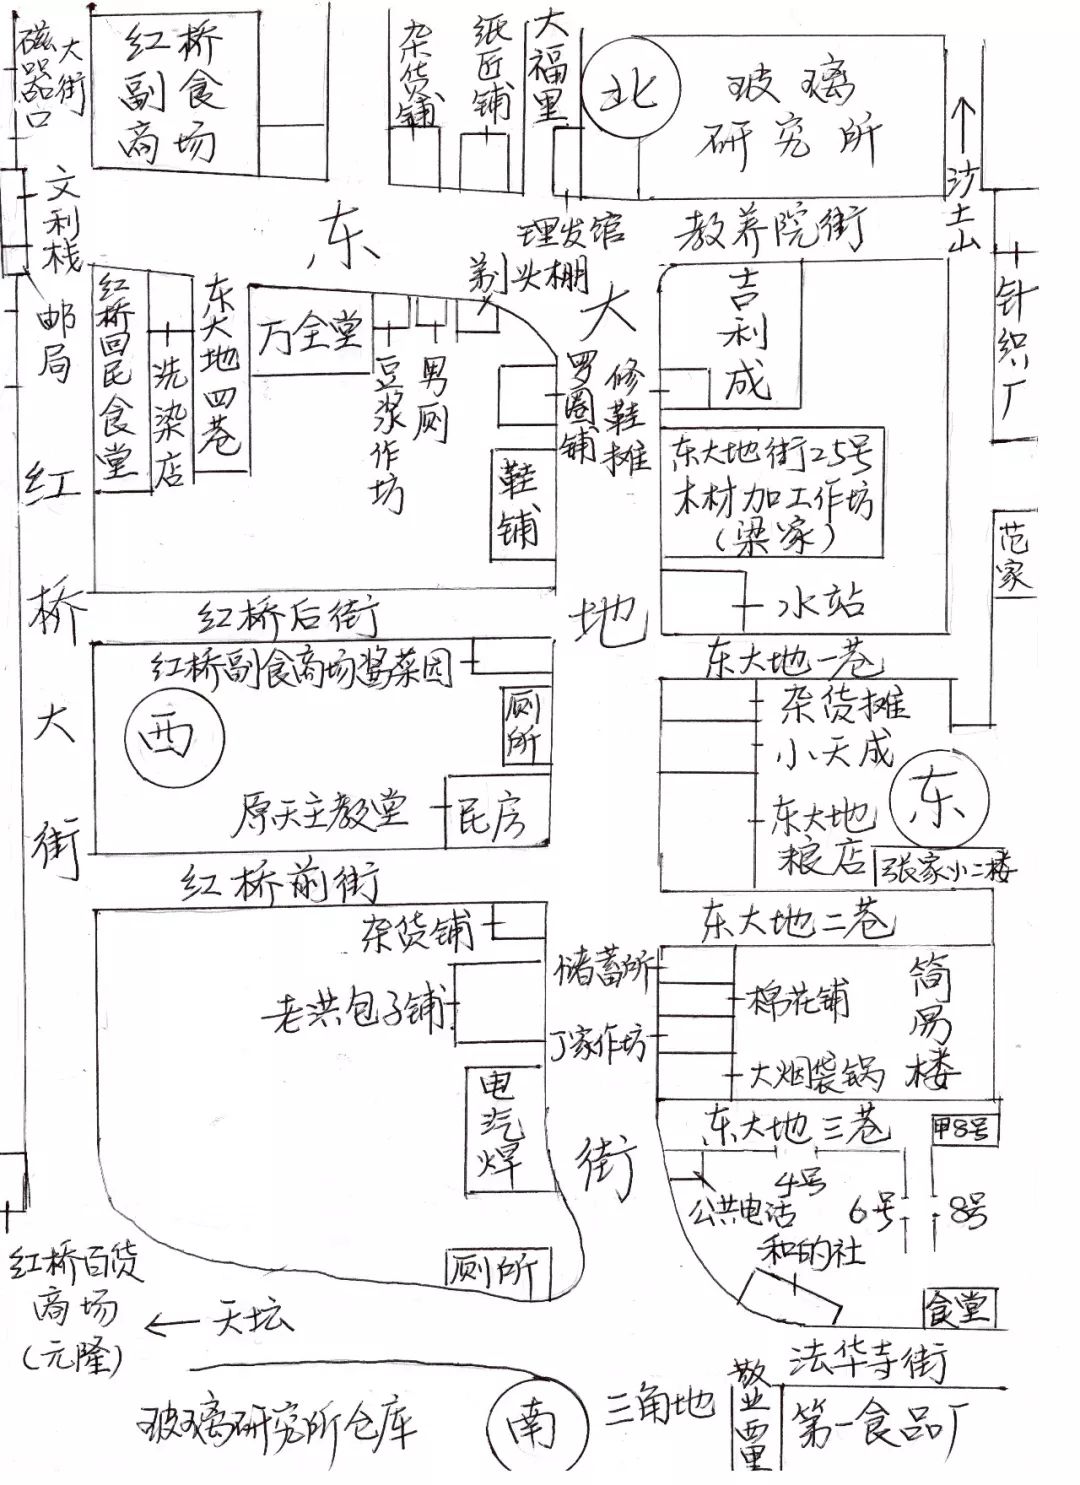 磁器口
大街
红桥
副食
商场
杂货铺
纸匠铺
大福里
北
玻璃
研究所
沙土山
文利栈
邮局
东
理发馆
剃头棚
教养院街
针织厂
红桥回民食堂
洗染店
东大地四巷
万全堂
豆浆作坊
男厕
大
罗圈铺
修鞋摊
吉利成
鞋铺
东大地街25号
木材加工作坊
(梁家)
范家
红桥大街
红桥后街
地
水站
东大地一巷
红桥副食商场酱菜园
厕所
西
原天主教堂
民房
杂货摊
小天成
东大地
粮店
东
张家小二楼
红桥前街
东大地二巷
杂货铺
老洪包子铺
电汽焊
储蓄所
丁家作坊
棉花铺
大烟袋锅
简易楼
街
东大地三巷
甲8号
4号
公共电话
6号
8号
和的社
厕所
食堂
红桥百货
商场
(元隆)
天坛
法华寺街
玻璃研究所仓库
南
三角地
敬业西里
第一食品厂